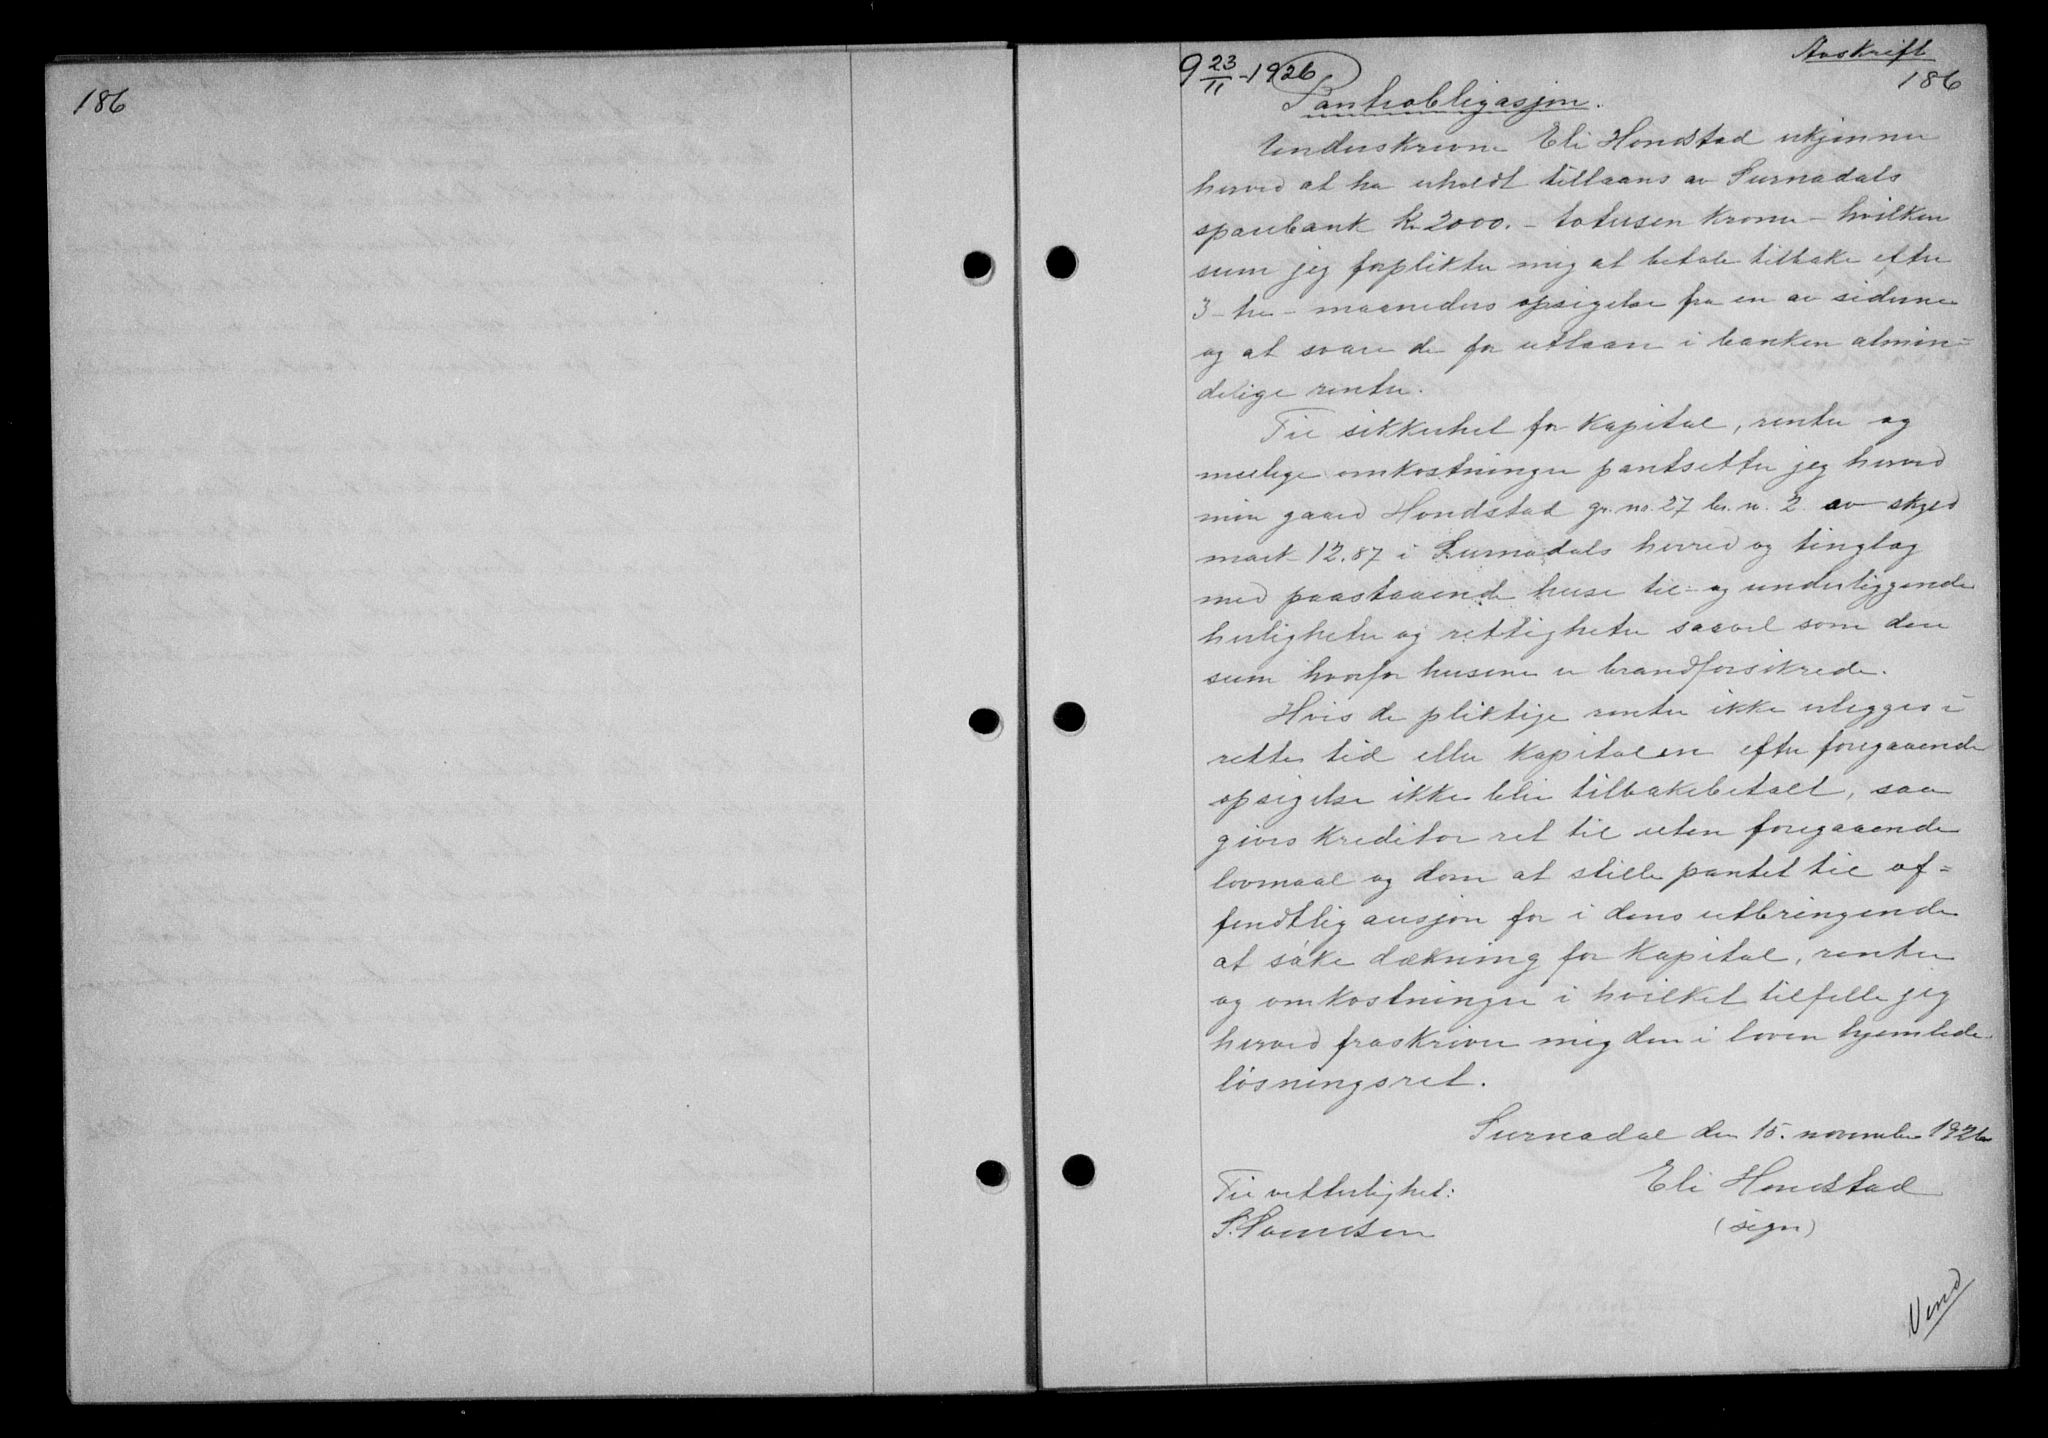 186
Avskrift
186
9 23/11-1926
Pantobligasjon.
Underskrevne Eli Hondstad erkjenner
herved at ha erholdt tillaans av Surnadals
sparebank kr 2000.- totusen kroner - hvilken
sum jeg forplikter mig at betale tilbake efter
3- tre - maaneders opsigelse fra en av siderne
og at svare de for utlaan i banken almin=
delige renter.
Til sikkerhet for kapital, renter og
mulige omkostninger pantsetter jeg herved
min gaard Hondstad gr. no. 27 br. n. 2 av skyld
mark 12.87 i Surnadals herred og tinglag
med paastaaende huse til- og underliggende
herligheter og rettigheter saavel som den
sum hvorfor husene er brandforsikrede.
Hvis de pliktige renter ikke erlegges i
rette tid eller kapitalen efter foregaaende
opsigelse ikke blir tilbakebetalt, saa
gives kreditor ret til uten foregaaende
lovmaal og dom at stille pantet til of=
fendtlig ausjon for i dens utbringende
at søke dækning for kapital, renter
og omkostninger i hvilket tilfelle jeg
herved fraskriver mig den i loven hjemlede
løsningsret.
Surnadal den 15. november 1926
Til vitterlighet: Eli Hondstad
S. Svendsen (sign)
Vend